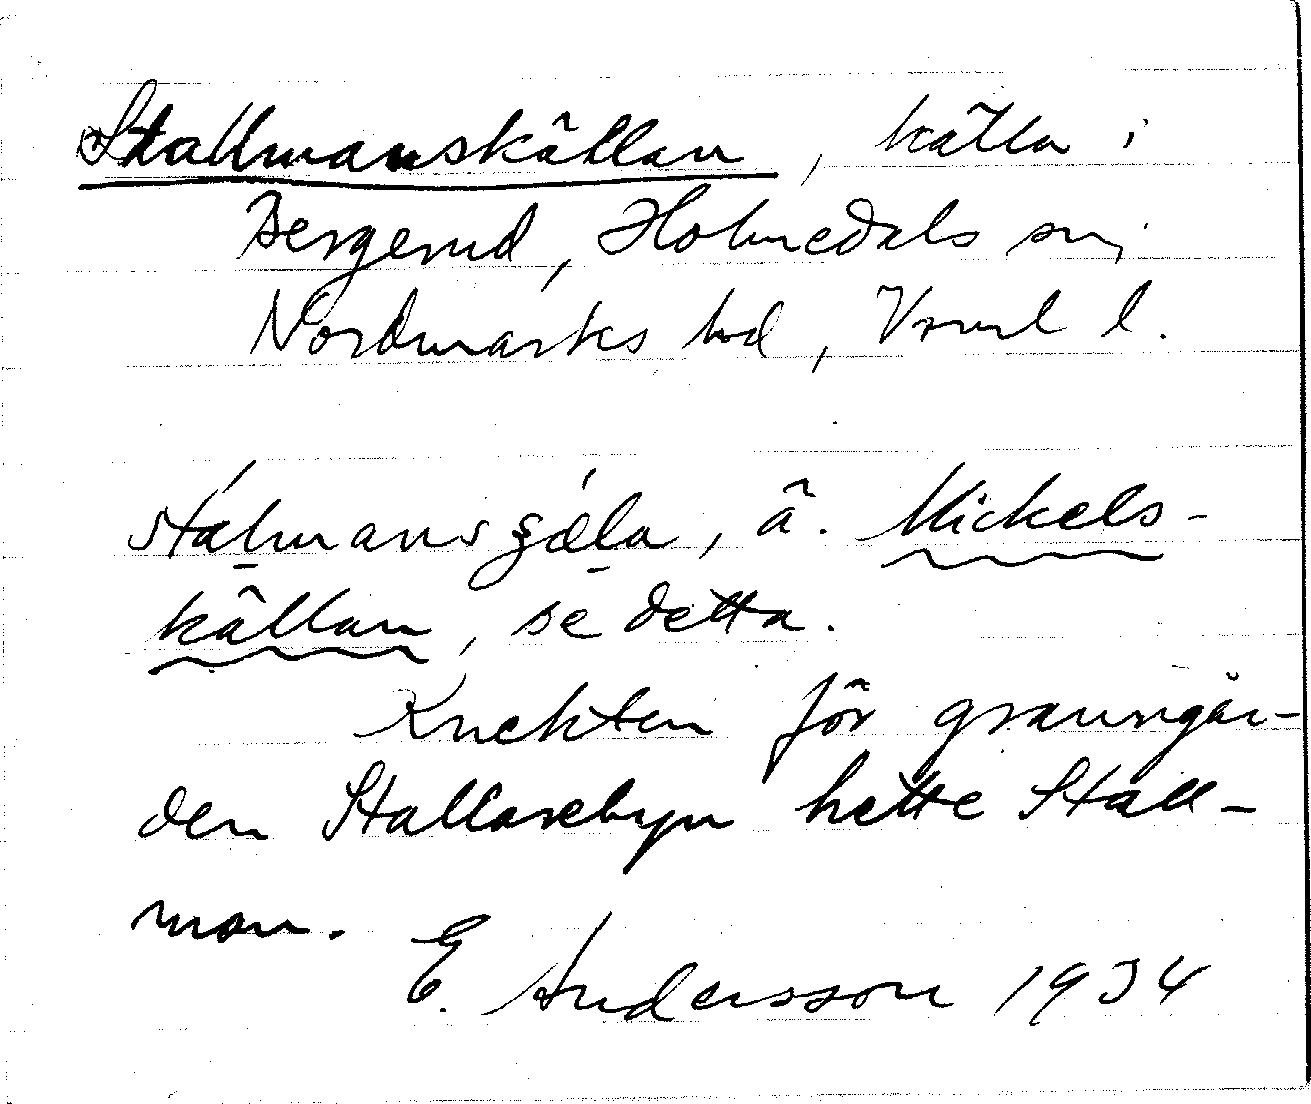 Stallmanskällan, källa i
Bergerud, Holmedals sn,
Nordmarks hd, Vrml l.
stalmansʒæla, ä. Mickels-
källan, se detta.
Knekten för granngår-
den Stallarebyn hette Stall-
man.
E. Andersson 1934